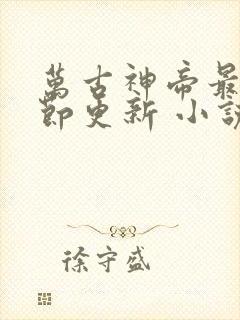 萬古神帝最
節更新 小說
徐守盛